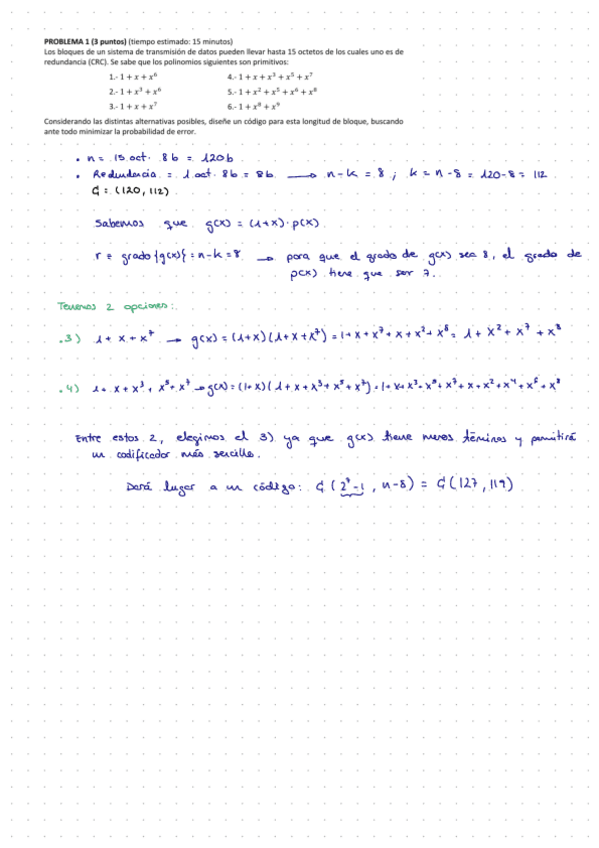 PROBLEMA 1 (3 puntos) (tiempo estimado: 15 minutos)
Los bloques de un sistema de transmisión de datos pueden llevar hasta 15 octetos de los cuales uno es de
redundancia (CRC). Se sabe que los polinomios siguientes son primitivos:
1.- 1 + x + x⁶ 4.- 1 + x + x³ + x⁵ + x⁷
2.- 1 + x³ + x⁶ 5.- 1 + x² + x⁵ + x⁶ + x⁸
3.- 1 + x + x⁷ 6.- 1 + x⁸ + x⁹
Considerando las distintas alternativas posibles, diseñe un código para esta longitud de bloque, buscando
ante todo minimizar la probabilidad de error.
• n = 15 oct. 8b = 120b
• Redundancia = 1 oct. 8b = 8b → n-k = 8 ; k = n-8 = 120-8 = 112
C = (120, 112)
Sabemos que g(x) = (1+x)·p(x)
r = grado {g(x)} = n-k = 8 → para que el grado de g(x) sea 8, el grado de
p(x) tiene que ser 7.
Tenemos 2 opciones:
3) 1 + x + x⁷ → g(x) = (1+x)(1+x+x⁷) = 1+x+x⁷+x+x²+x⁸ = 1+x²+x⁷+x⁸
4) 1 + x + x³ + x⁵ + x⁷ → g(x) = (1+x)(1+x+x³+x⁵+x⁷) = 1+x+x³+x⁵+x⁷+x+x²+x⁴+x⁶+x⁸
Entre estos 2, elegimos el 3) ya que g(x) tiene menos téminos y permitirá
un codificador más sencillo.
Dará lugar a un código: C (2⁷-1, n-8) = C (127, 119)